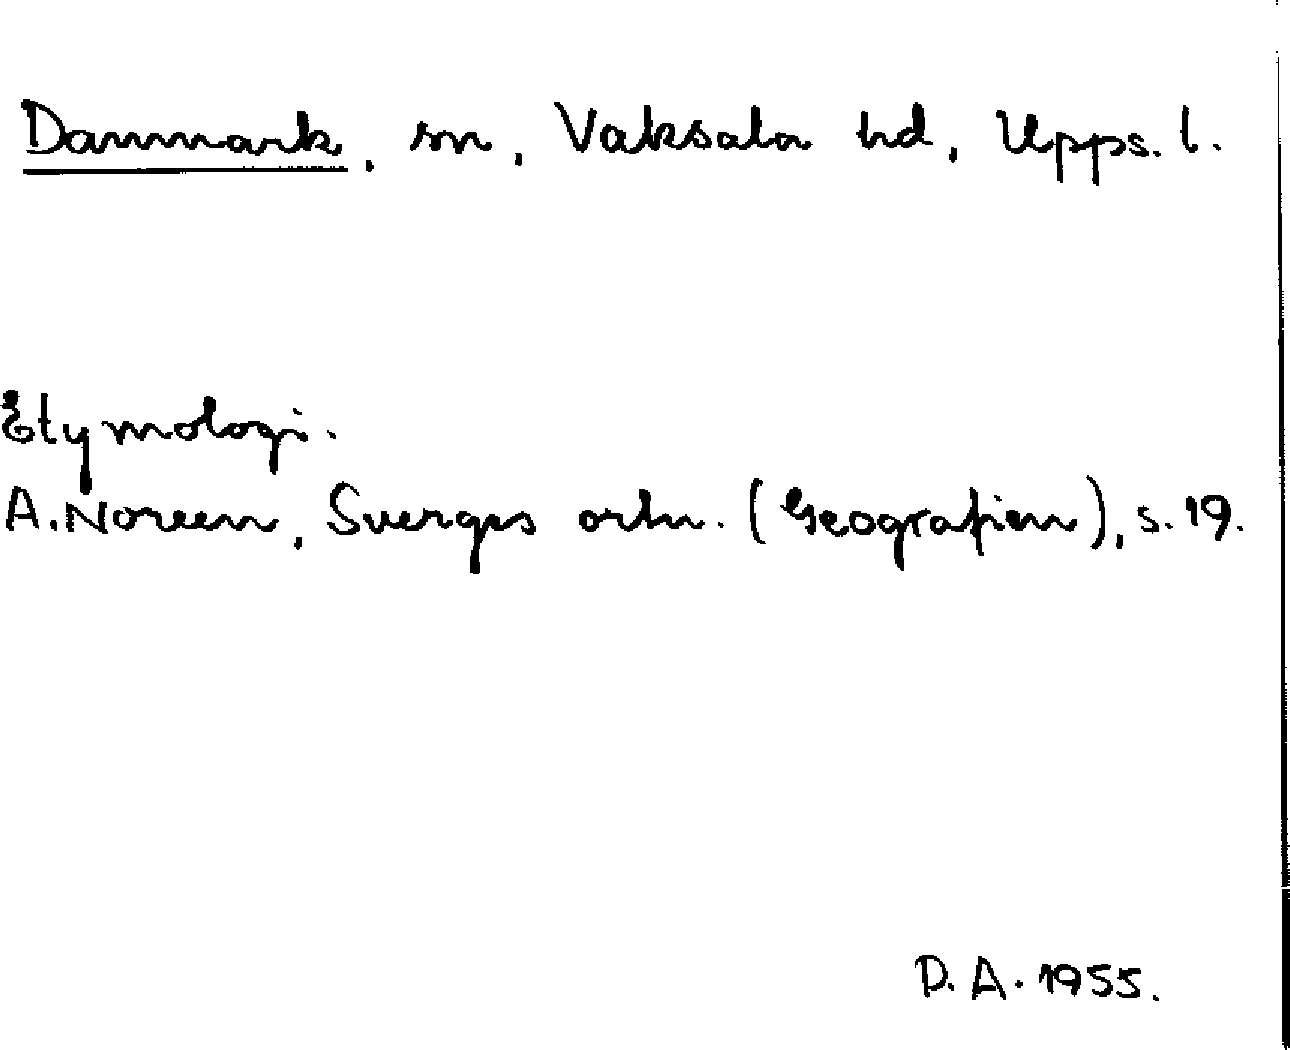 Danmark, sn, Vaksala hd, Upps. l.
Etymologi.
A. Noreen, Sverges ortn. (Geografien), s. 19.
D. A. 1955.